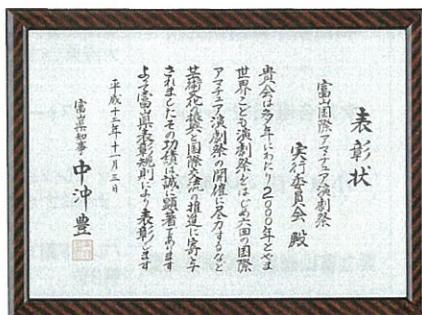 表彰状
富山国際アマチュア演劇祭
実行委員会 殿
貴会は多年にわたり2000年とやま
世界こども演劇祭をはじめ六回の国際
アマチュア演劇祭の開催に尽力するなど
芸術文化の振興と国際交流の推進に寄与
されましたその功績は誠に顕著であります
よって富山県表彰規則により表彰します
平成十二年十一月三日
富山県知事 中沖豊